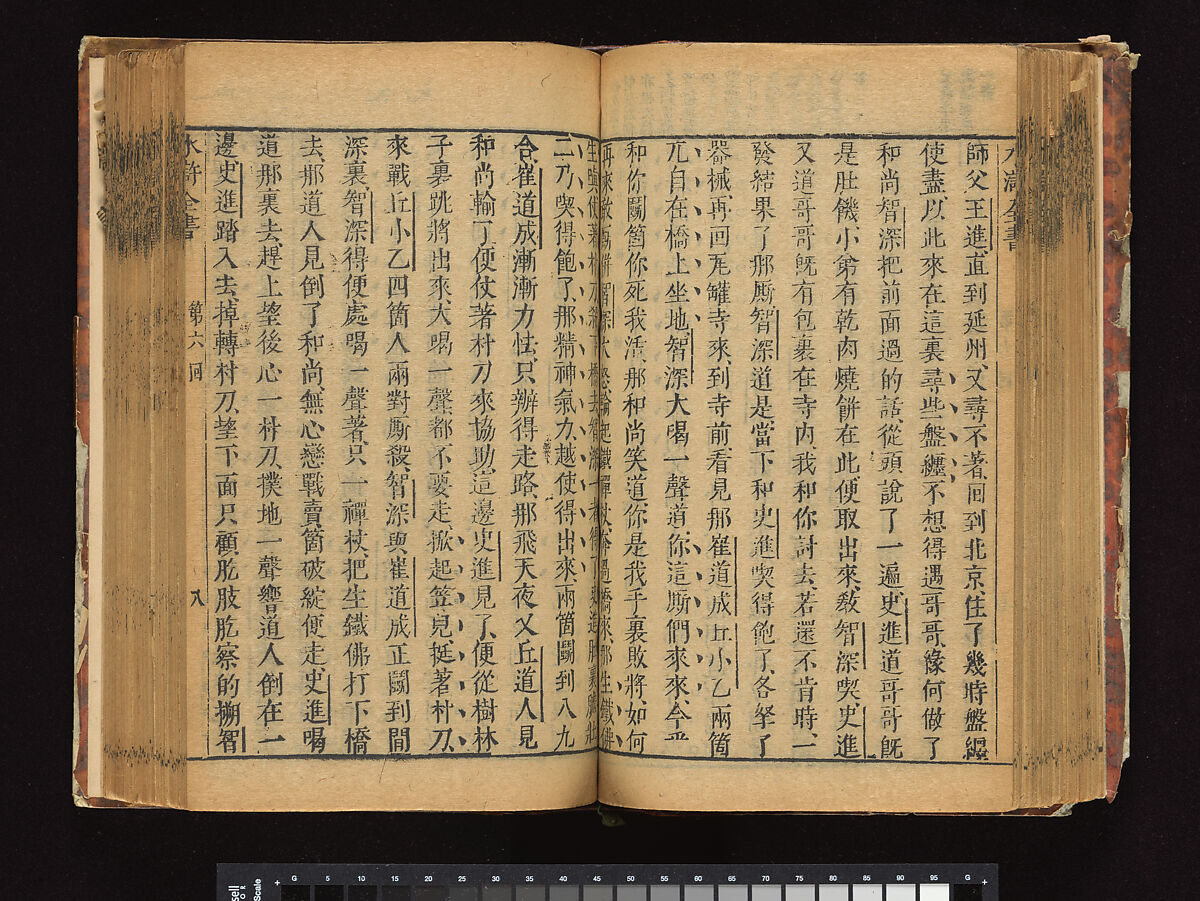 師父王進直到延州又尋不著回到北京住了幾時盤纏
使盡以此來在這裏尋些盤纏不想得遇哥哥緣何做了
和尚智深把前面過的話從頭說了一遍史進道哥哥旣
是肚饑小弟有乾肉燒餅在此便取出來敎智深喫史進
又道哥哥旣有包裹在寺內我和你討去若還不肯時一
發結果了那廝智深道是當下和史進喫得飽了各拏了
器械再回瓦罐寺來到寺前看見那崔道成丘小乙兩箇
兀自在橋上坐地智深大喝一聲道你這廝們來來今番
和你鬭箇你死我活那和尚笑道你是我手裏敗將如何
再來敢廝併智深大怒輪起鐵禪杖奔過橋來那生鐵佛
生嗔仗著朴刀殺下橋去智深一者得了史進肚裏膽壯
二乃喫得飽了那精神氣力越使得出來兩箇鬭到八九
合崔道成漸漸力怯只辦得走路那飛天夜叉丘道人見
和尚輸了便仗著朴刀來協助這邊史進見了便從樹林
子裏跳將出來大喝一聲都不要走掀起笠兒挺著朴刀
來戰丘小乙四箇人兩對廝殺智深與崔道成正鬭到間
深裏智深得便處喝一聲著只一禪杖把生鐵佛打下橋
去那道人見倒了和尚無心戀戰賣箇破綻便走史進喝
道那裏去趕上望後心一朴刀撲地一聲響道人倒在一
邊史進踏入去掉轉朴刀望下面只顧肐肢肐察的搠智
水滸全書 第六回 八
水滸全書
G 5 10 15 20 25 30 35 40 45 50 55 60 65 70 75 80 85 90 95 G